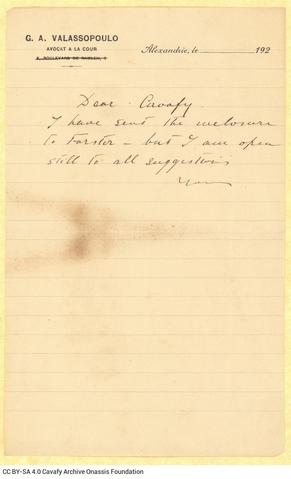 G. A. VALASSOPOULO
AVOCAT A LA COUR
Alexandrie, le 192
Dear Cavafy
I have sent the enclosure
to Forster – but I am open
still to all suggestions
CC BY-SA 4.0 Cavafy Archive Onassis Foundation